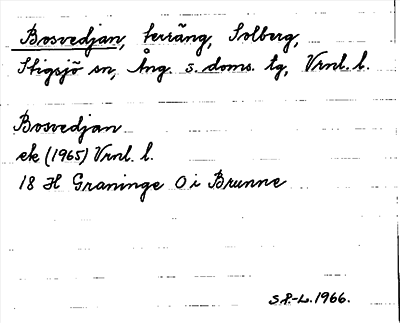 Bosvedjan, terräng, Solberg,
Stigsjö sn, Ång. s. doms. tg, Vrnl. l.
Bosvedjan
ek (1965) Vrnl. l.
18 H Graninge O i Brunne
S.P.-L. 1966.